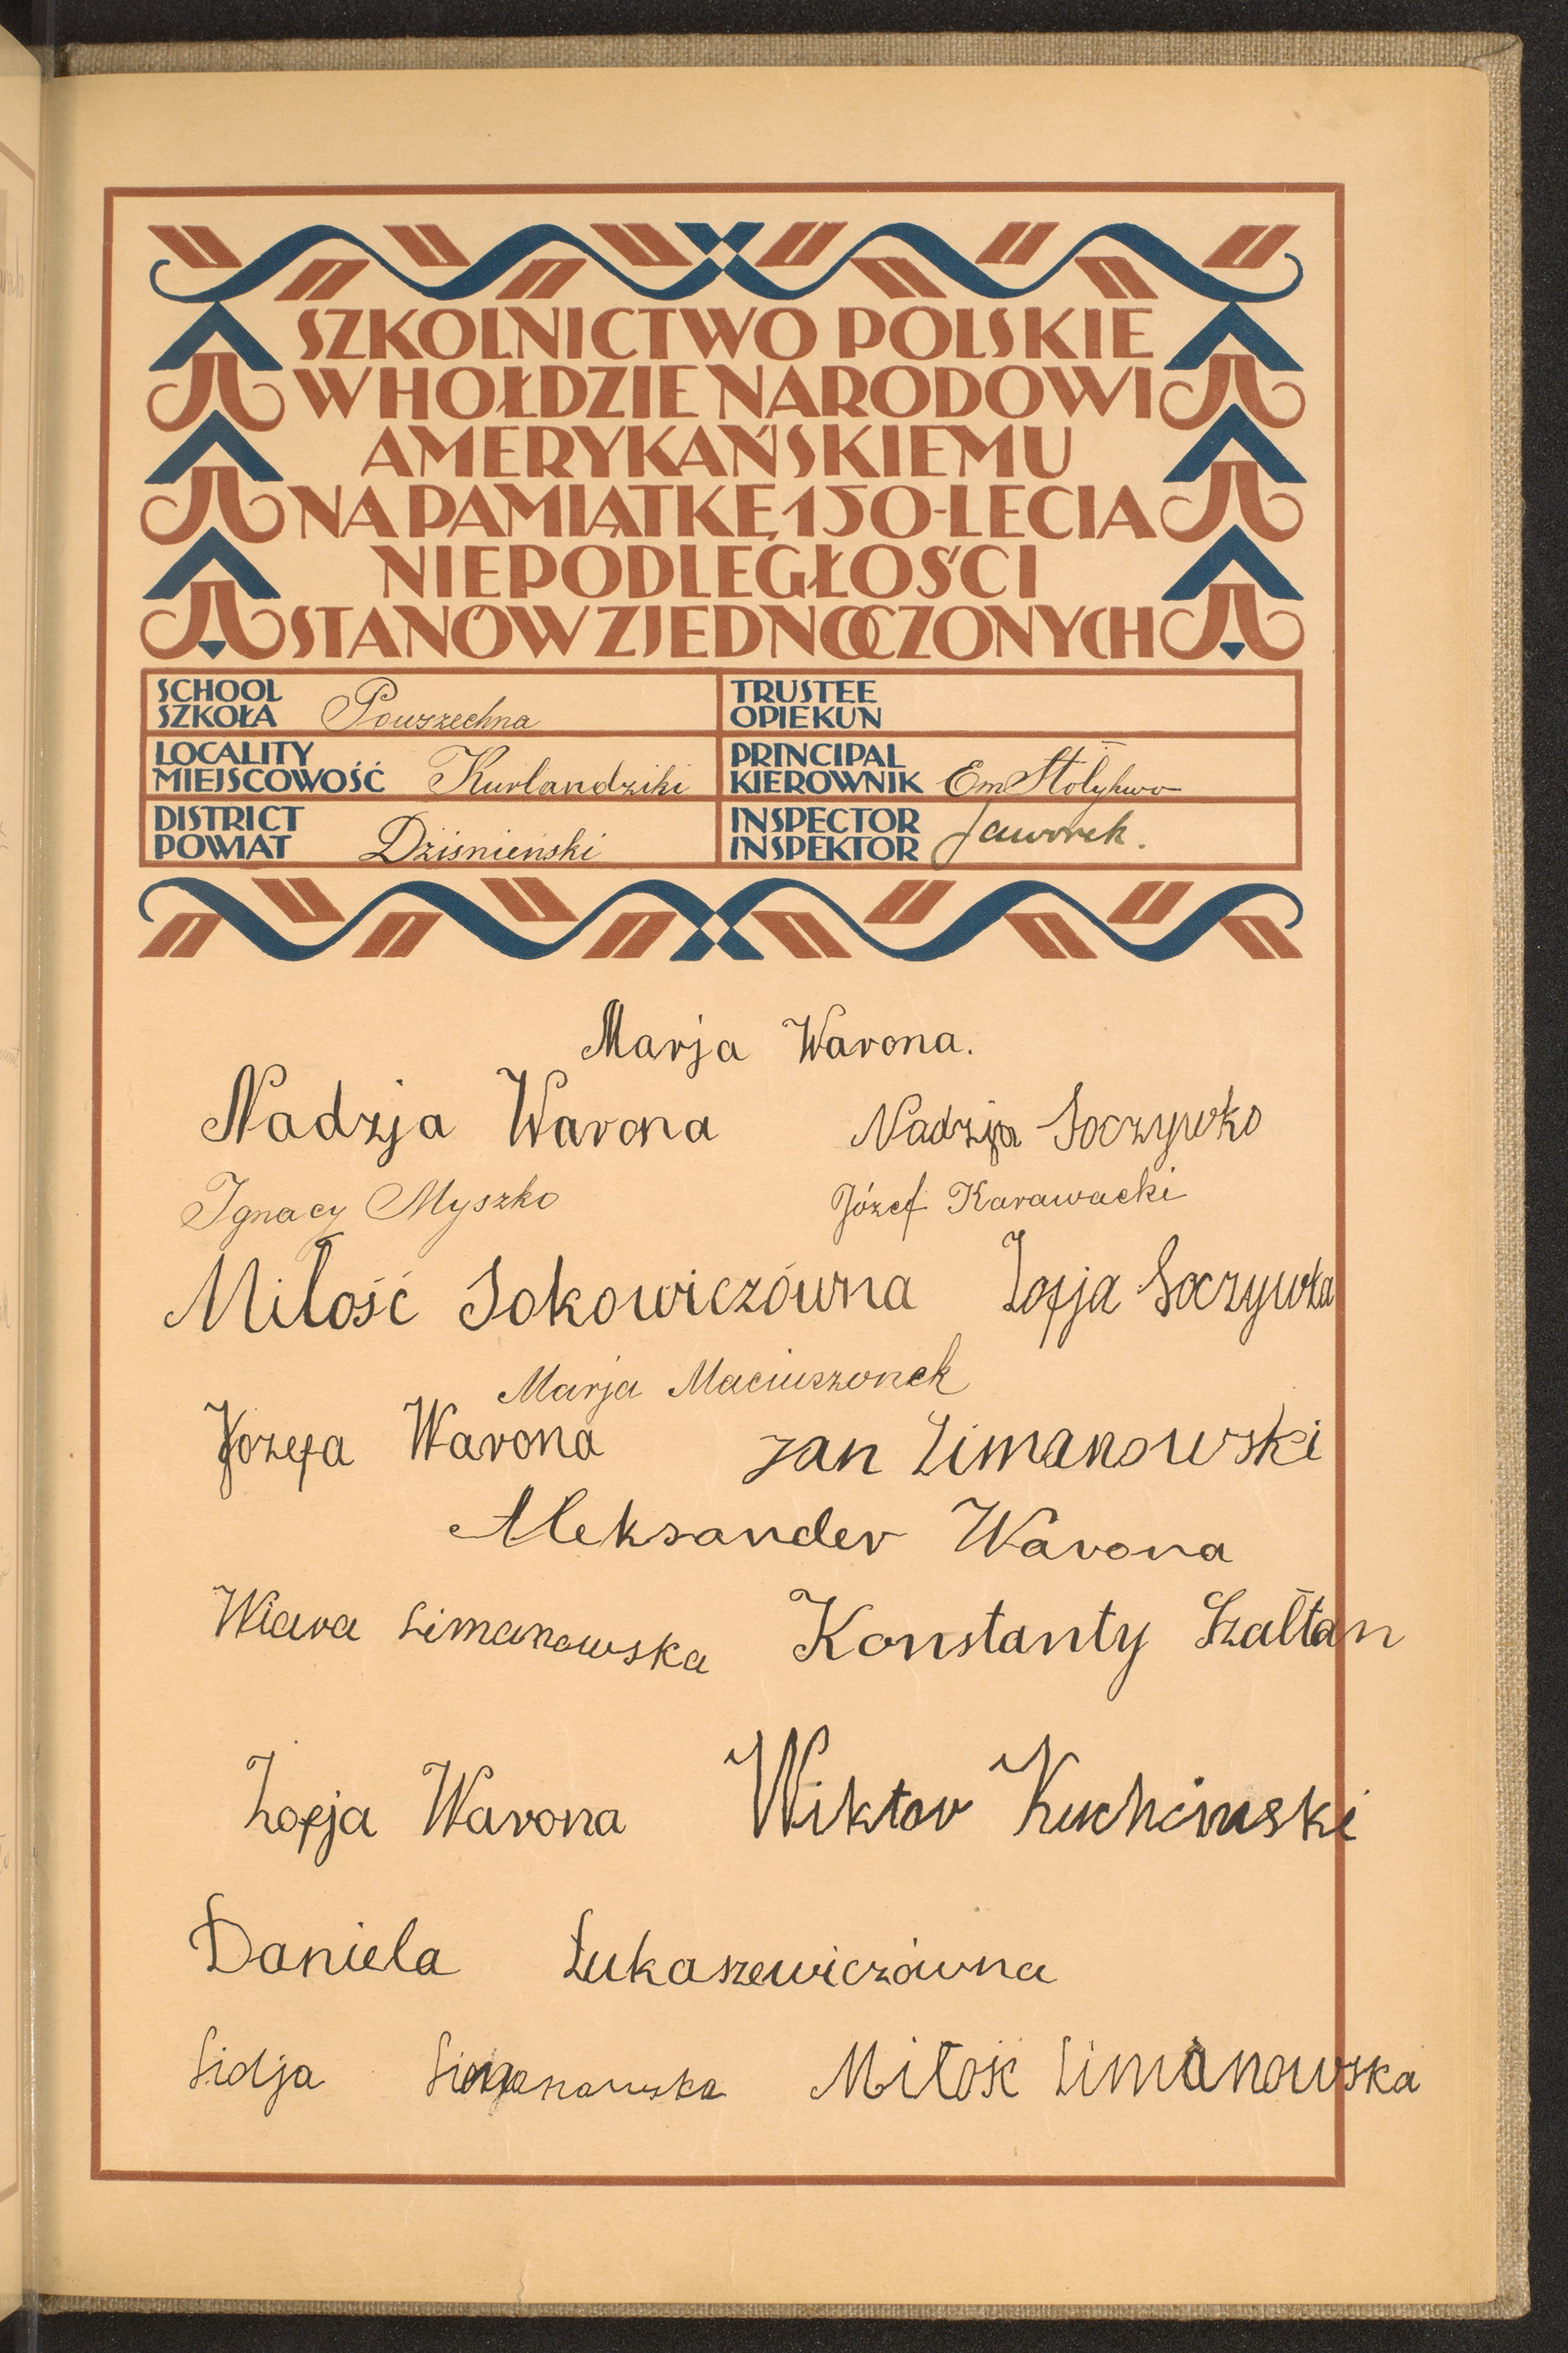 SZKOLNICTWO POLSKIE
W HOŁDZIE NARODOWI
AMERYKAŃSKIEMU
NA PAMIĄTKĘ 150-LECIA
NIEPODLEGŁOŚCI
STANÓW ZJEDNOCZONYCH
SCHOOL
SZKOŁA Powszechna
TRUSTEE
OPIEKUN
LOCALITY
MIEJSCOWOŚĆ Kurlandziki
PRINCIPAL
KIEROWNIK Em Stołyhwo
DISTRICT
POWIAT Dziśnieński
INSPECTOR
INSPEKTOR Jaworek.
Marja Warona.
Nadzja Warona Nadzja Soczywko
Ignacy Myszko Józef Karawacki
Miłość Sokowiczówna Zofja Soczywka
Marja Maciuszonek
Józefa Warona Jan Limanowski
Aleksander Warona
Wiara Limanowska Konstanty Szałtan
Zofja Warona Wiktor Kuchcinski
Daniela Łukaszewiczówna
Lidja Limanowska Miłość Limanowska